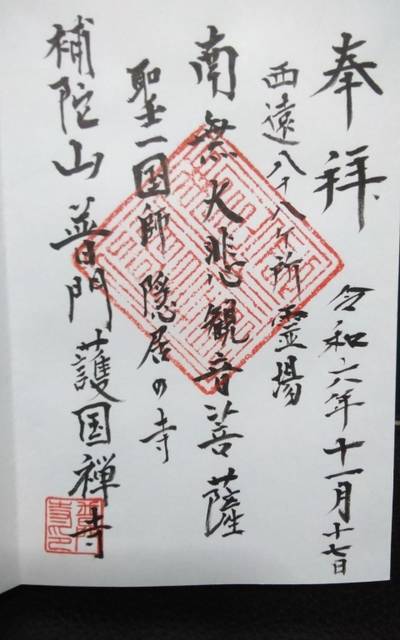 奉拝 令和六年十一月十七日
西遠八十八ヶ所霊場
南無大悲観音菩薩
聖一国師隠居の寺
補陀山普門護国禅寺